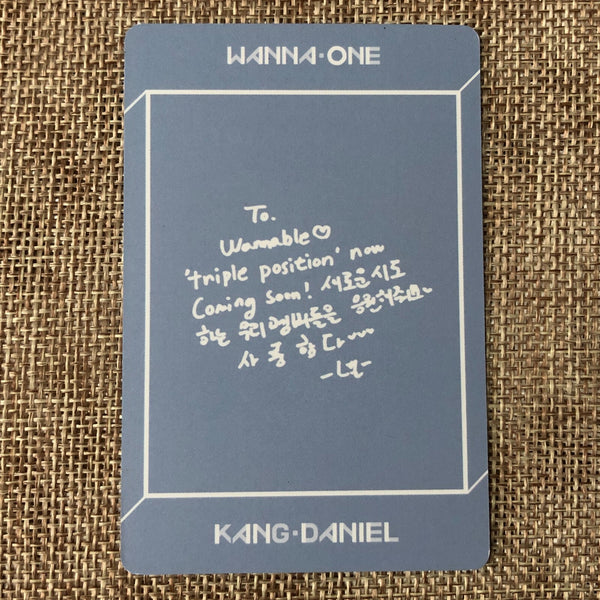 WANNA·ONE
To.
Wannable♡
'triple position' now
Coming soon! 새로운 시도
하는 우리 멤버들을 응원해주세요
사랑한다~~
KANG·DANIEL